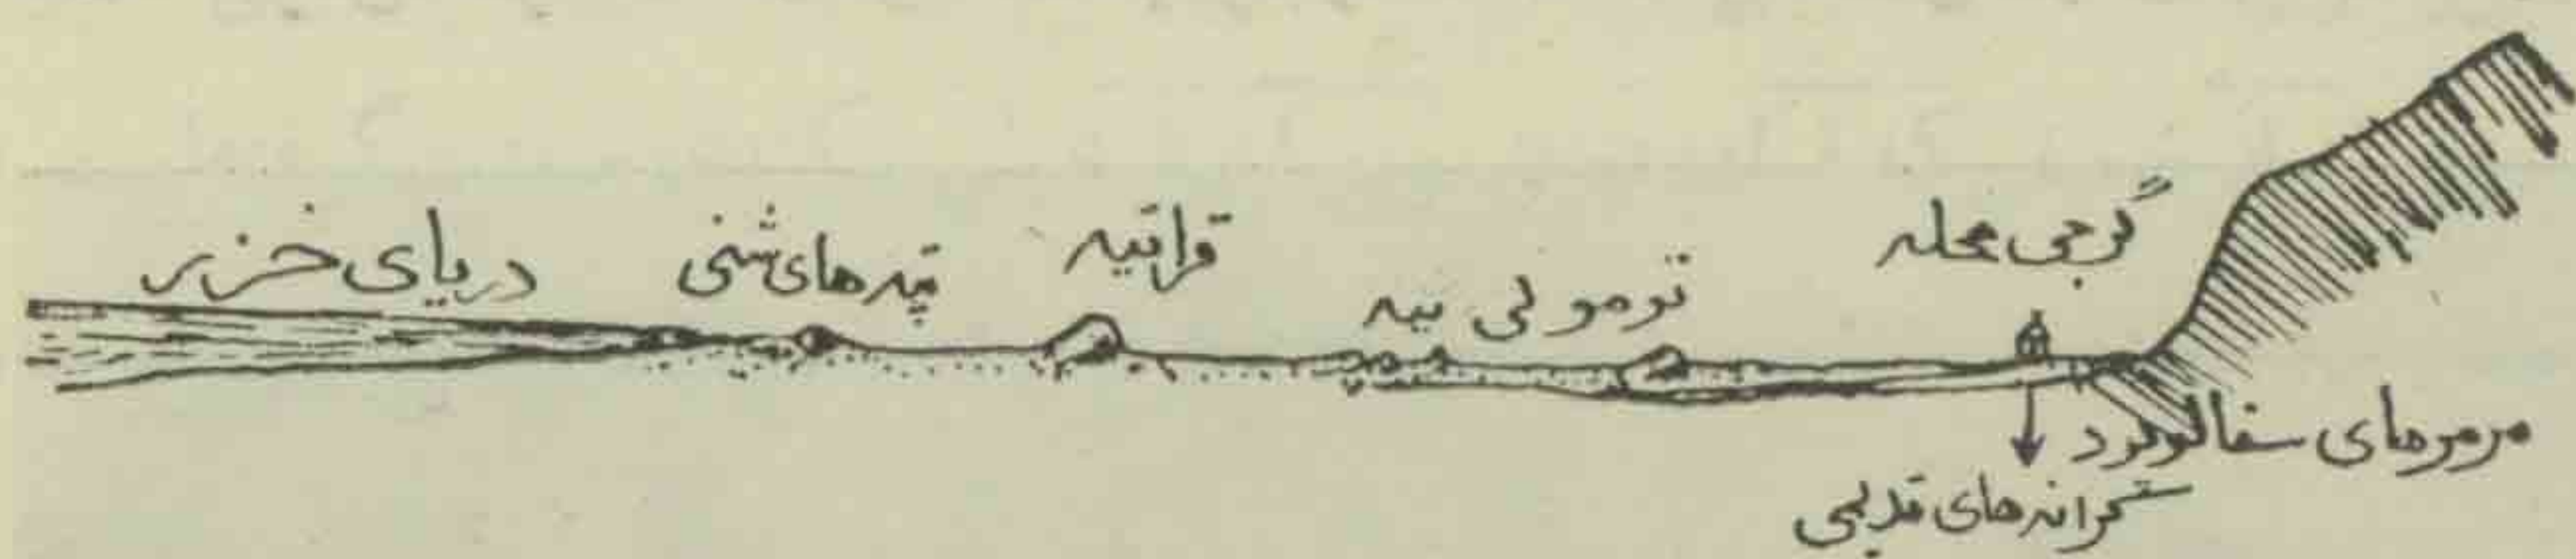 گرجی محله
تومولی تپه
قراتپه
تپه های شنی
دریای خزر
مرمرهای
کرانه های قدیمی